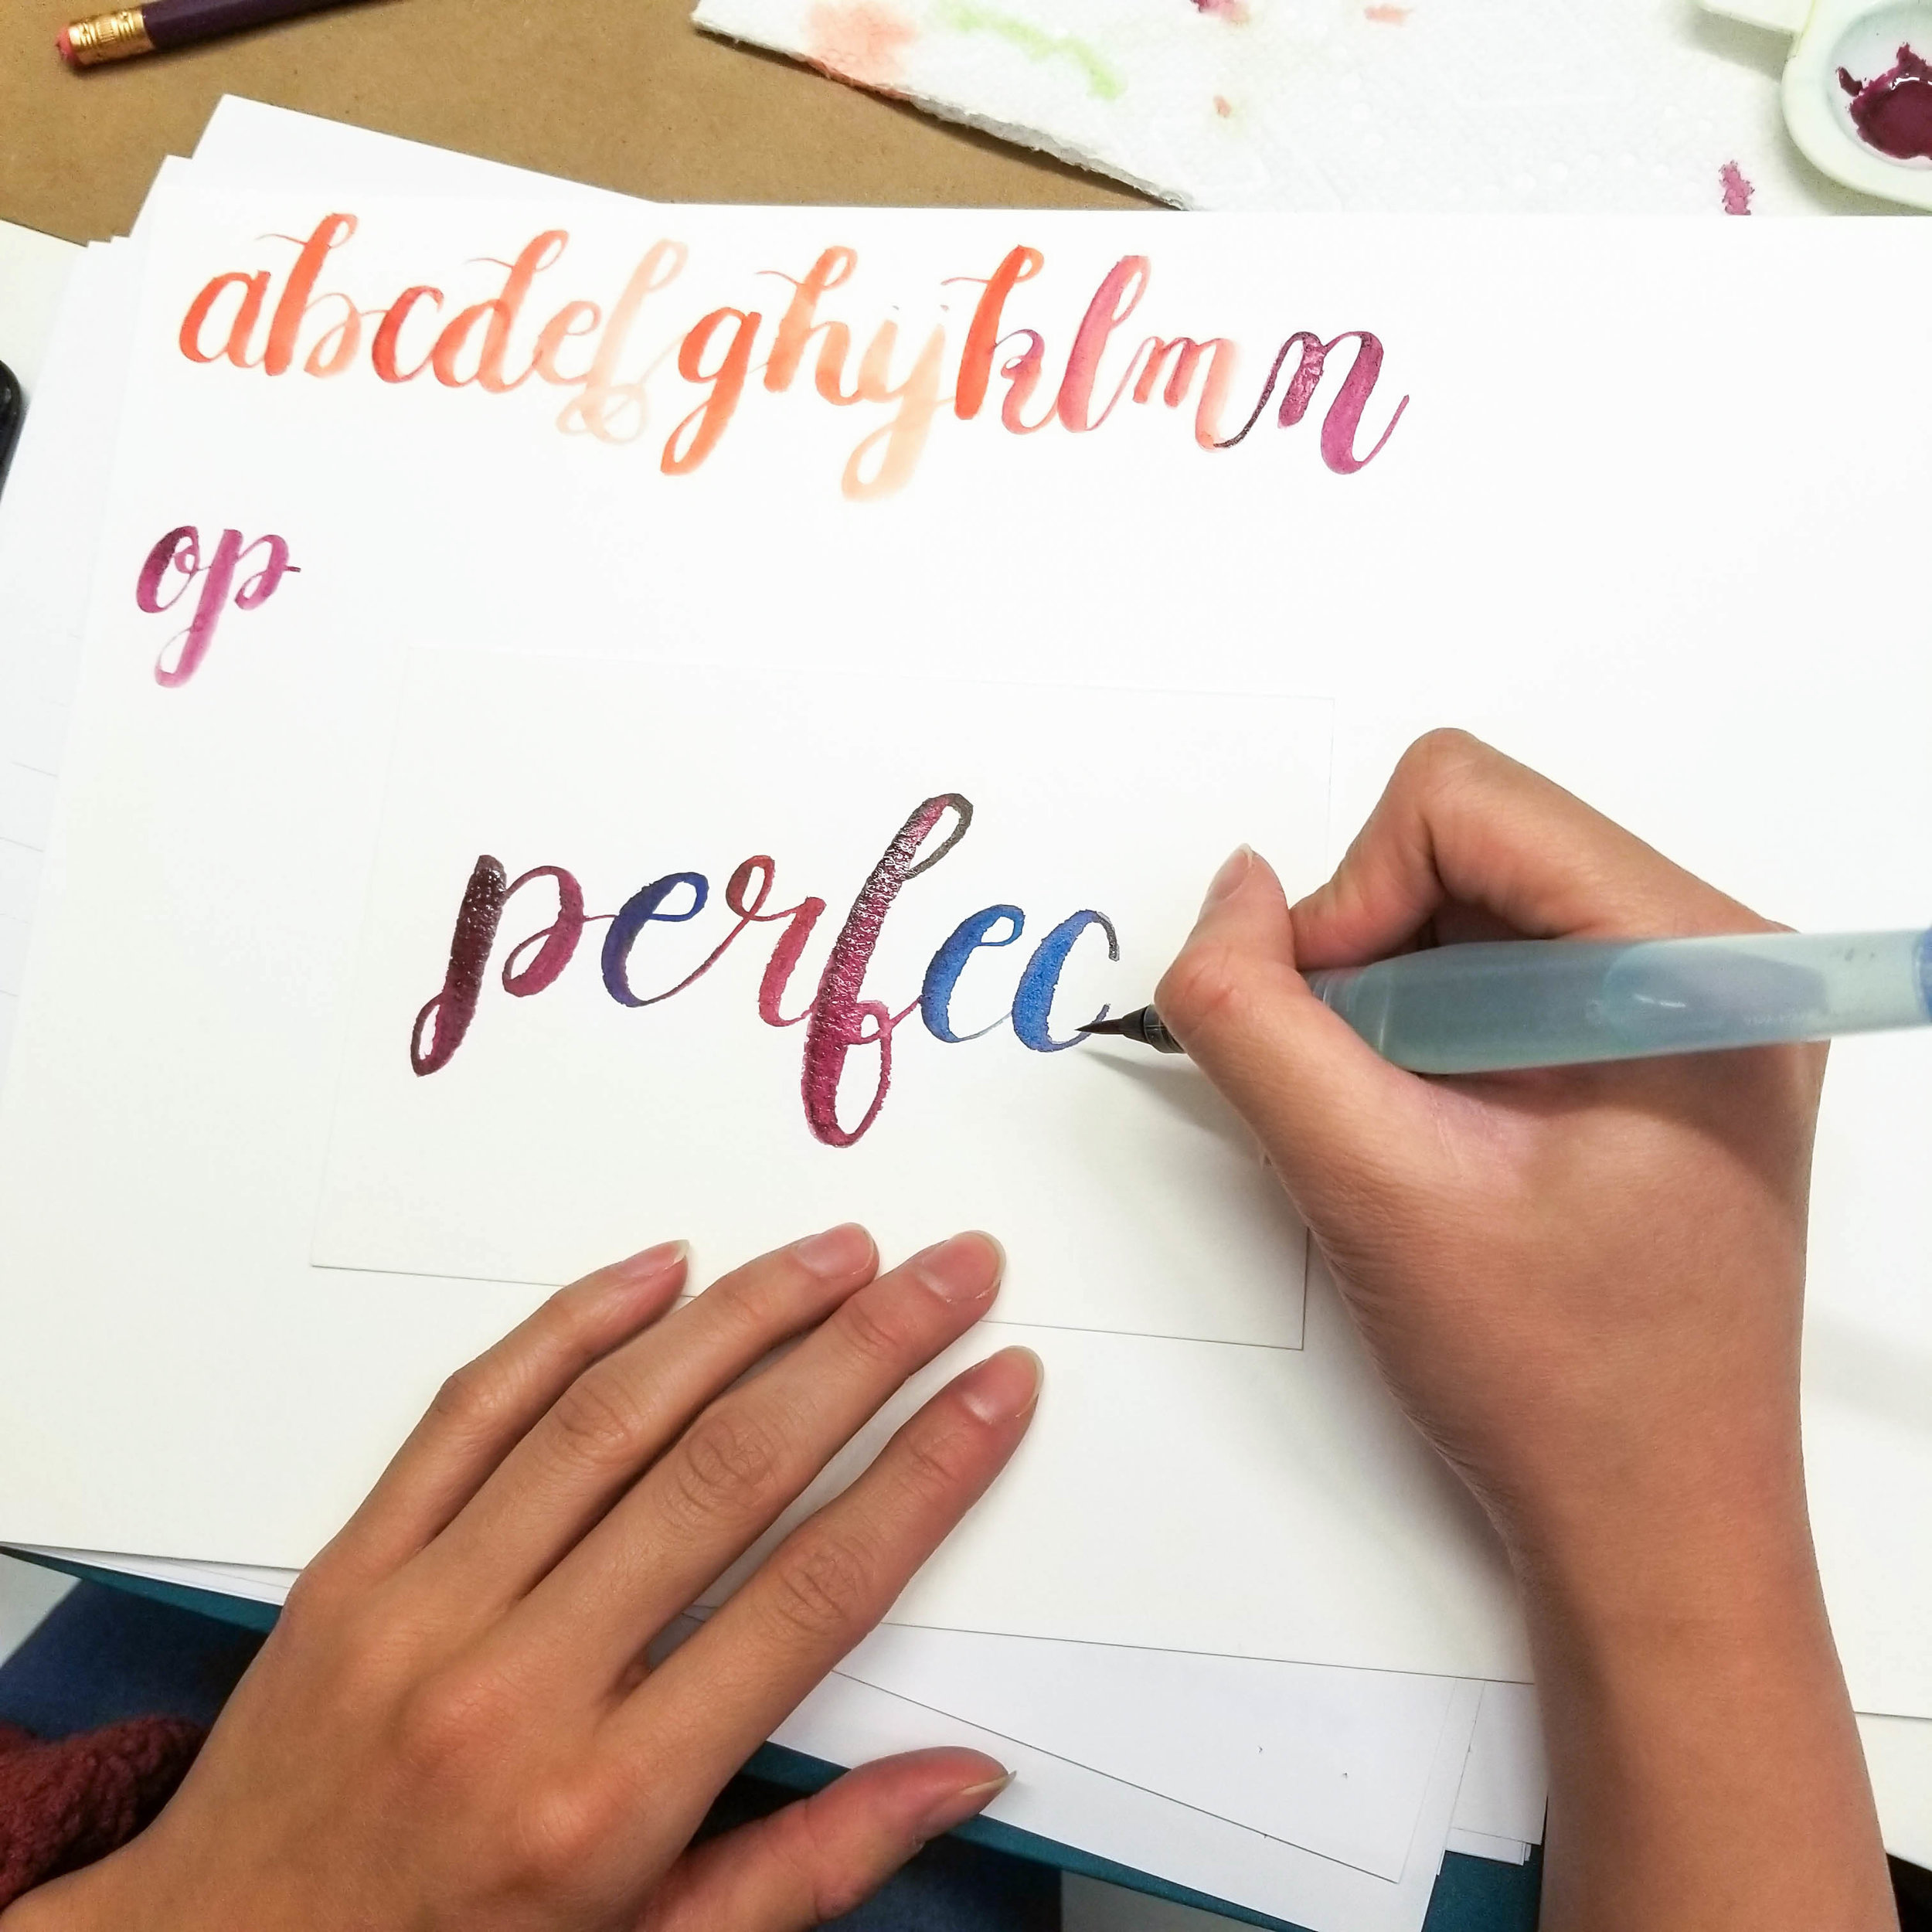 abcdefghijklmn
op
perfec